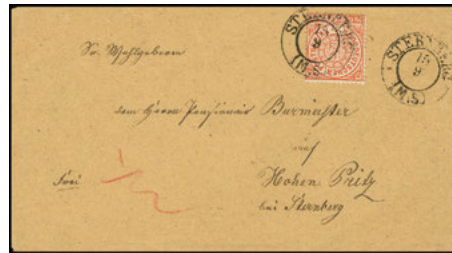 STERNBERG
15
9
(M.S)
STERNBERG
15
9
(M.S)
Sr. Wohlgeboren
dem Herrn Pensionair Burmeister
auf
frei
Hohen Pritz
bei Sternberg